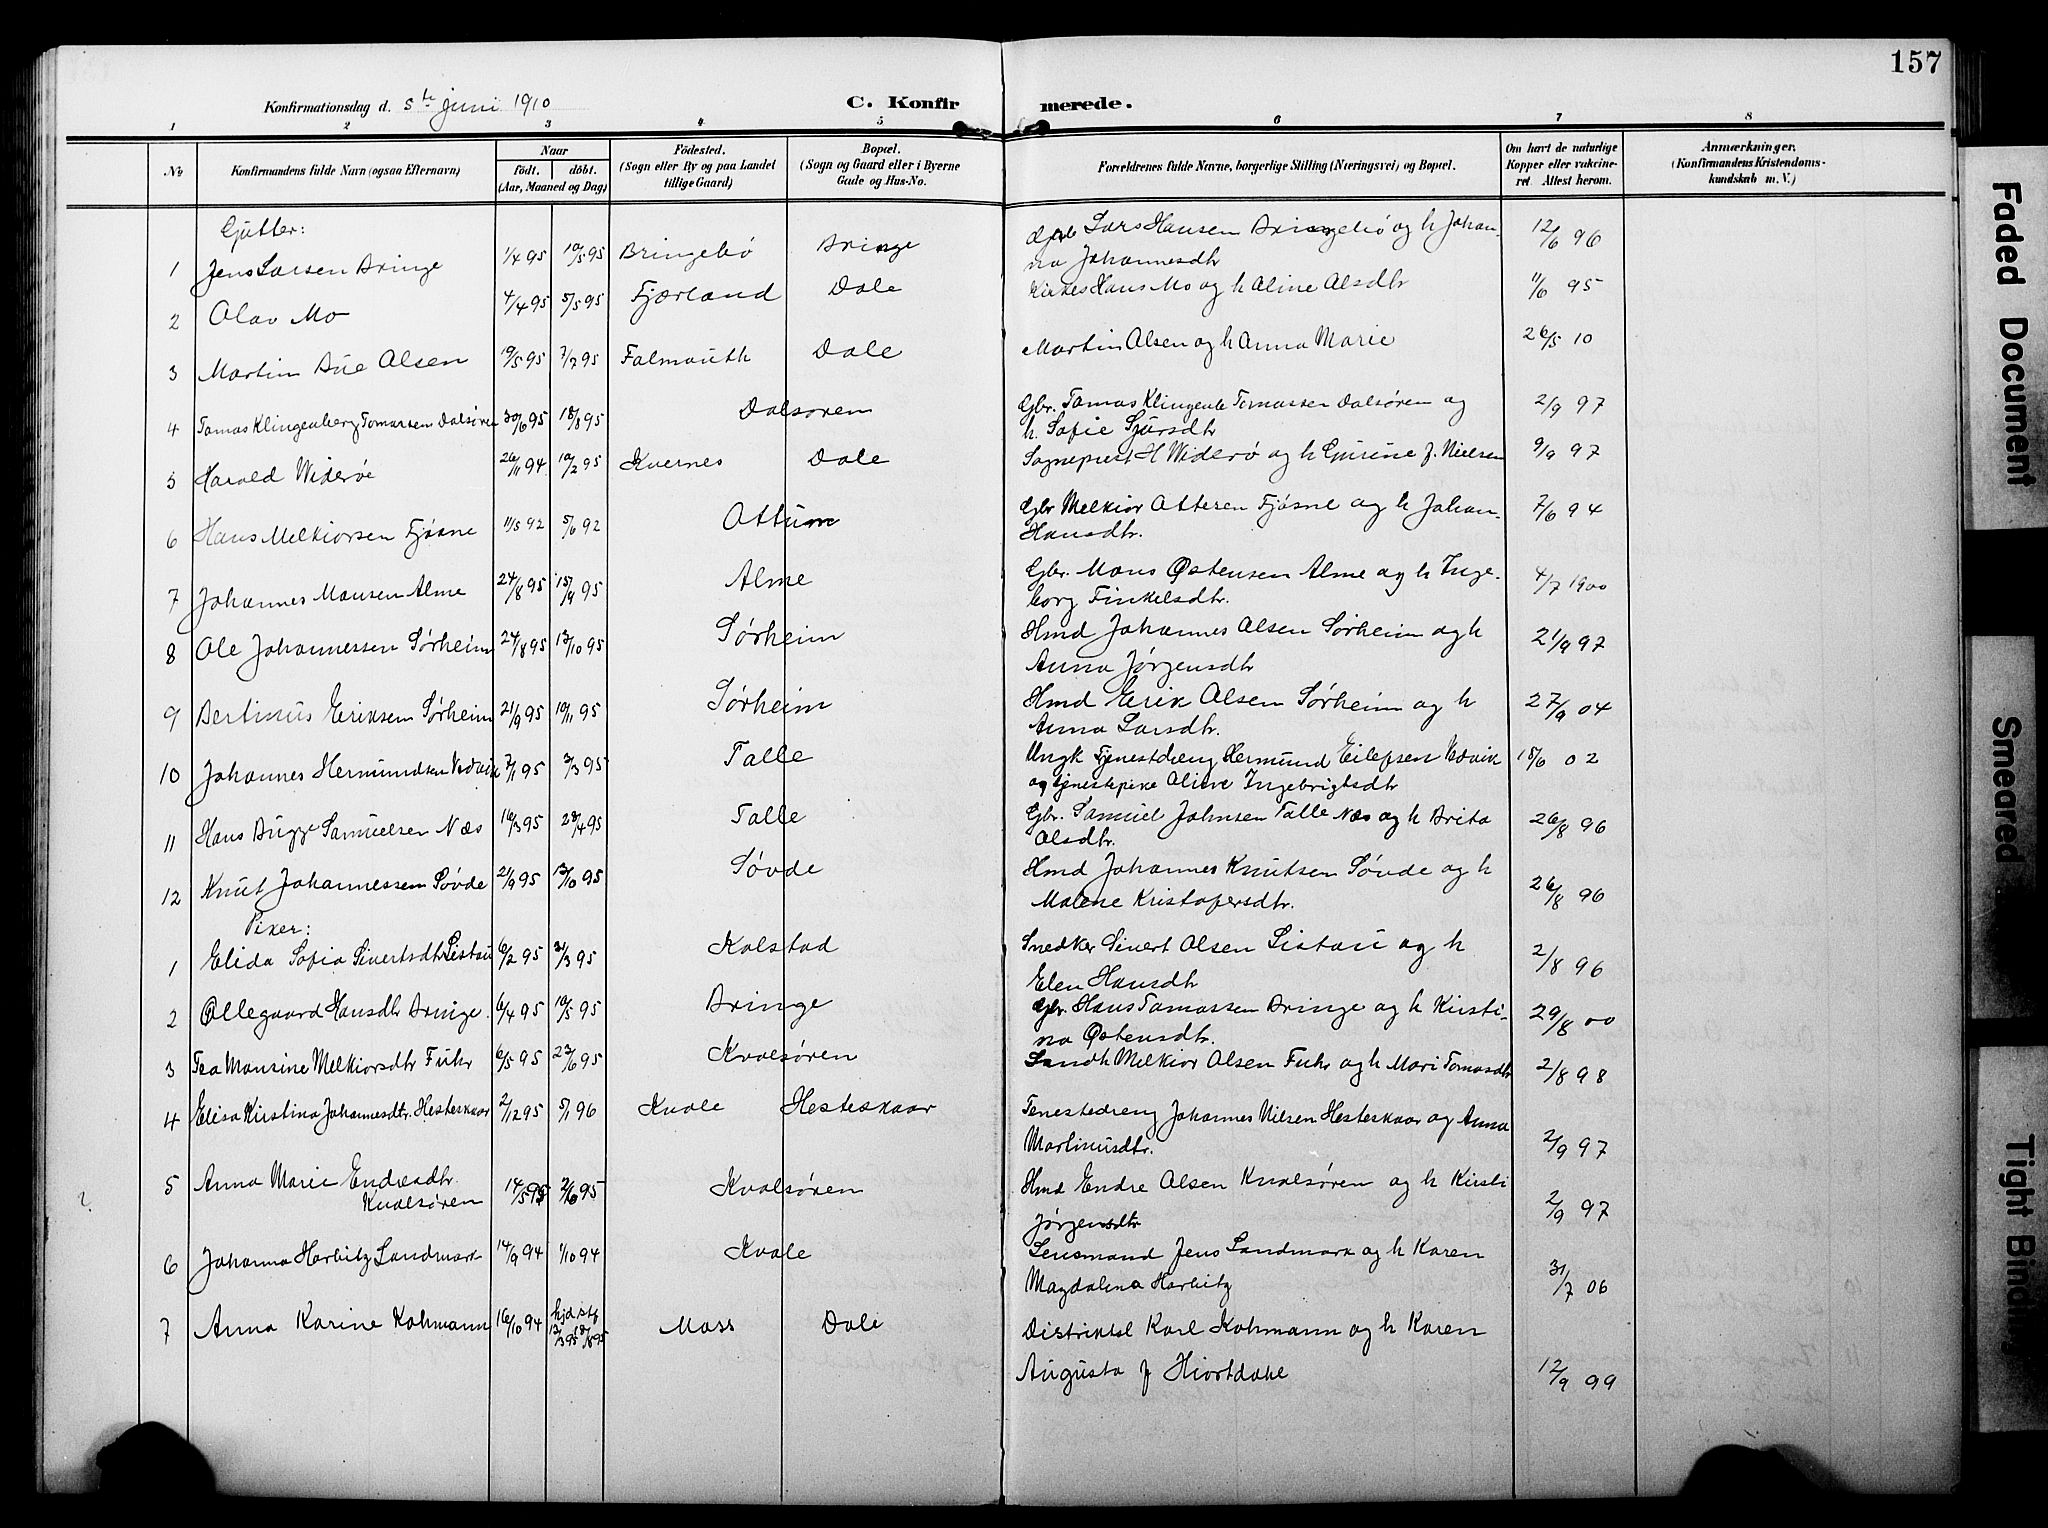 157
Konfirmationsdag d. 5te juni 1910 C. Konfirmerede.
1 2 3 4 5 6 7 8
No
Konfirmandens fulde Navn (ogsaa Efternavn)
Naar
født. døbt.
(Aar, Maaned og Dag)
Fødested.
(Sogn eller By og paa Landet
tillige Gaard)
Bopæl.
(Sogn og Gaard eller i Byerne
Gade og Hus-No.
Forældrenes fulde Navne, borgerlige Stilling (Næringsvei) og Bopæl.
Om havt de naturlige
Kopper eller vakcine-
ret. Attest herom.
Anmærkninger.
(Konfirmandens Kristendoms-
kundskab m. V.)
Gutter:
1 Jens Larsen Bringe 1/4 95 10/5 95 Bringebø Bringe Gbr Lars Hansen Bringebø og h Johan- 12/6 96
na Johannesdtr
2 Olav Mo 4/4 95 5/5 95 Fjærland Dale Kirkes Hans Mo og h Aline Alsdtr 11/6 95
3 Martin Bue Alsen 10/5 95 7/7 95 Falmouth Dale Martin Alsen og h Anna Marie 26/5 10
4 Tomas Klingenberg Tomassen Dalsøren 30/6 95 18/8 95 Dalsøren Gbr. Tomas Klingenb Tomassen Dalsøren og 2/9 97
h. Sofie Sjursdtr
5 Harald Widerøe 26/11 94 10/2 95 Kvernes Dale Sogneprest H Widerø og h Gurine f. Nielsen 9/9 97
6 Hans Melkiorsen Fjøsne 11/5 92 5/6 92 Ottum Gbr Melkior Ottesen Fjøsne og h Johan- 7/6 94
Hansdtr.
7 Johannes Monsen Alme 24/8 95 15/9 95 Alme Gbr. Mons Østensen Alme og h Inge- 4/7 1900
borg Finkelsdtr.
8 Ole Johannessen Sørheim 24/8 95 13/10 95 Sørheim Hmd Johannes Olsen Sørheim og h 21/9 97
Anna Jørgensdtr
9 Bertinus Eriksen Sørheim 21/9 95 10/11 95 Sørheim Hmd Erik Olsen Sørheim og h 27/9 04
Anna Larsdtr.
10 Johannes Hermundsen Kvævik 7/1 95 3/3 95 Talle Ungk Tjenestdreng Hermund Eilefsen 18/6 02
og tjenestepike Oline Ingebrigtsdtr
11 Hans Bugge Samuelsen Næs 16/3 95 28/4 95 Talle Gbr. Samuel Johnsen Talle Næs og h Brita 26/8 96
Olsdtr.
12 Knut Johannessen Søvde 21/9 95 13/10 95 Søvde Hmd Johannes Knutsen Søvde og h
Malene Kristofersdtr. 26/8 96
Piker:
1 Elida Sofia Sivertsdtr Listau 6/2 95 31/3 95 Kolstad Snedker Sivert Olsen Listau og h 2/8 96
Elen Hansdtr
2 Ollegaard Hansdtr Bringe. 6/4 95 10/5 95 Bringe Gbr. Hans Tomassen Bringe og h Kristi- 29/8 00
na Østensdtr.
3 Tea Monsine Melkiorsdtr Fuhr 6/5 95 23/6 95 Kvalsøren Landh Melkior Olsen Fuhr og h Mari Tomasdtr 2/8 98
4 Elisa Kirstina Johannesdtr. Hesteskaar 2/12 95 5/1 96 Kvale Hesteskaar Tenestedreng Johannes Nilsen Hesteskaar og Anna
Martinusdtr. 2/9 97
5 Anna Marie Endresdtr. 14/5 95 2/6 95 Kvalsøren Hmd Endre Olsen Kvalsøren og h Kirsti
Kvalsøren Jørgensdtr 2/9 97
6 Johanna Harbitz Landmark 14/9 94 1/10 94 Kvale Lensmand Jens Landmark og h Karen
Magdalena Harbitz 31/7 06
7 Anna Karine Kohmann 16/10 94 hjd stf 12/3 95 18/8 95 Moss Dale Distriktsl Karl Kohmann og h Karen
Augusta f Hiortdahl 12/9 99
Faded Document
Smeared
Tight Bindi